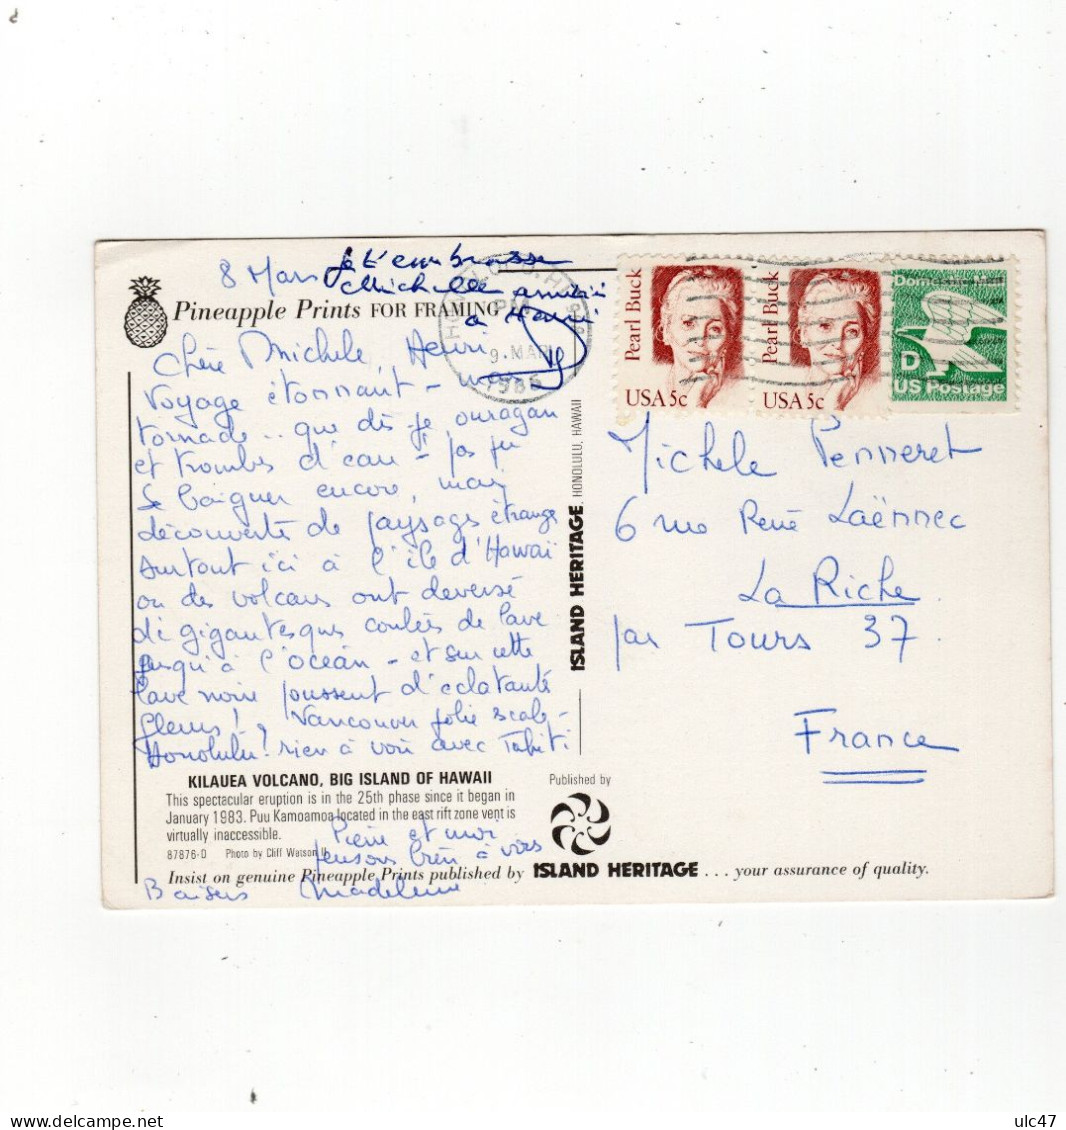 8 Mars
Je t'embrasse
Michelle amitiés
à Henri
Pineapple Prints FOR FRAMING
HONOLULU, HI
PM
9 MAR
1986
Chère Michele, Henri
Voyage étonnant -
tornade .. que dis-je ouragan
et trombes d'eau - pas pu
se baigner encore, mais
découverte de paysages étranges
surtout ici à l'île d'Hawaï
ou des volcans ont déversé
de gigantesques coulées de lave
jusqu'à l'océan - et sur cette
lave noire poussent d'éclatantes
fleurs! Vancouver jolie escale -
Honolulu? rien à voir avec Tahiti
Pierre et moi
pensons bien à vous
Baisers Madeleine
KILAUEA VOLCANO, BIG ISLAND OF HAWAII
This spectacular eruption is in the 25th phase since it began in
January 1983. Puu Kamoamoa located in the east rift zone vent is
virtually inaccessible.
87876-D Photo by Cliff Watson II
Insist on genuine Pineapple Prints published by ISLAND HERITAGE ... your assurance of quality.
Published by
ISLAND HERITAGE, HONOLULU, HAWAII
Pearl Buck
USA 5c
Pearl Buck
USA 5c
Domestic Mail
D
US Postage
Michele Penneret
6 rue René Laënnec
La Riche
par Tours 37.
France
ulc47